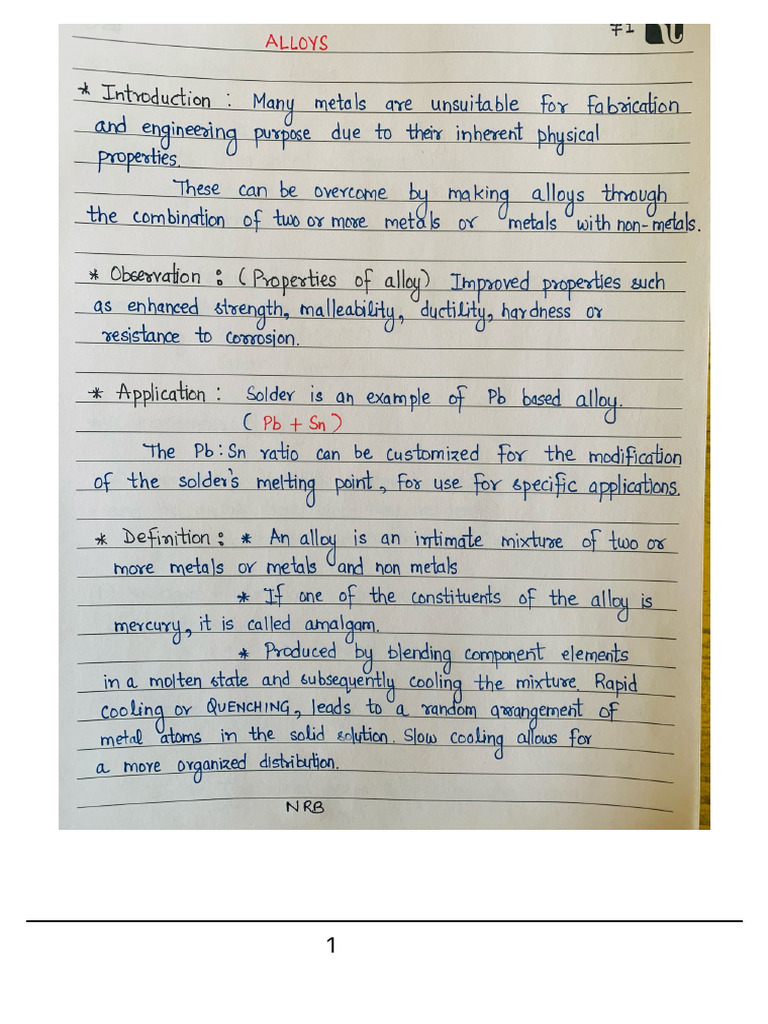 #1
ALLOYS
* Introduction : Many metals are unsuitable for fabrication
and engineering purpose due to their inherent physical
properties.
These can be overcome by making alloys through
the combination of two or more metals or metals with non-metals.
* Observation : (Properties of alloy) Improved properties such
as enhanced strength, malleability, ductility, hardness or
resistance to corrosion.
* Application : Solder is an example of Pb based alloy.
( Pb + Sn )
The Pb : Sn ratio can be customized for the modification
of the solder's melting point, for use for specific applications.
* Definition : * An alloy is an intimate mixture of two or
more metals or metals and non metals
* If one of the constituents of the alloy is
mercury, it is called amalgam.
* Produced by blending component elements
in a molten state and subsequently cooling the mixture. Rapid
cooling or QUENCHING, leads to a random arrangement of
metal atoms in the solid solution. Slow cooling allows for
a more organized distribution.
NRB
1